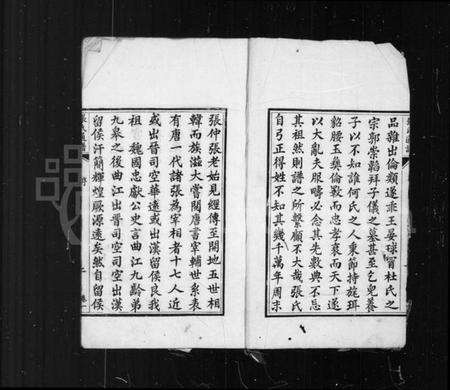 品雜出倫類遂乖王晏球冒杜氏之
宗郭崇韜拜子儀之墓甚至乞兒養
子以不知誰何氏之人秉節持旄珥
貂腰玉彝倫斁而忠孝衰而天下遂
以大亂夫服疇必念其先數典不忘
其祖然則譜之所繫顧不大哉張氏
自弓正得姓不知其幾千萬年周末
張仲張老始見經傳至開地五世相
韓而族滋大嘗閱唐書宰輔世系表
有唐一代諸張為宰相者十七人近
或出晉司空華遠或出漢留侯良我
祖 魏國忠獻公史言曲江九齡弟
九皋之後曲江出晉司空司空出漢
留侯汗簡輝煌厥源遠矣然自留侯